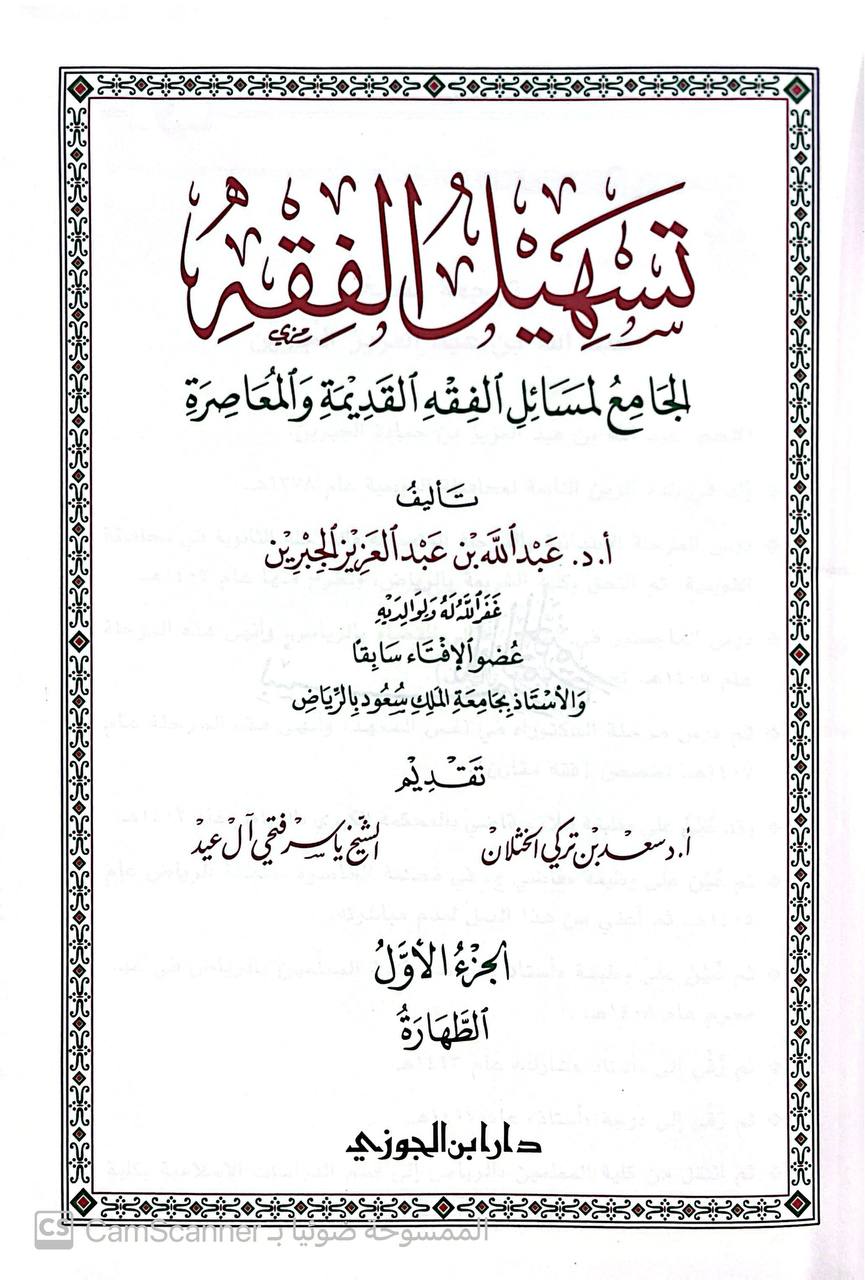 تسهيل الفقه
الجَامِعُ لمَسَائِلِ الفِقْهِ القَدِيمَةِ وَالمُعَاصِرَةِ
تَأليفُ
أ.د. عَبد اللَّه بن عَبْد العَزيْز الجِبْرِين
غَفَر اللَّه لَهُ وَلِوَالِدَيهِ
عُضو الإفتَاء سَابِقًا
وَالأسْتَاذ بجَامعَةِ المَلِك سُعُود بِالرِّيَاضِ
تَقْدِيْم
أ.د سعد بن تركي الخثلان
الشيخ ياسر فتحي آل عيد
الجزءُ الأوَّلُ
الطَّهَارَةُ
دار ابن الجوزي
CS CamScanner الممسوحة ضوئيا بـ